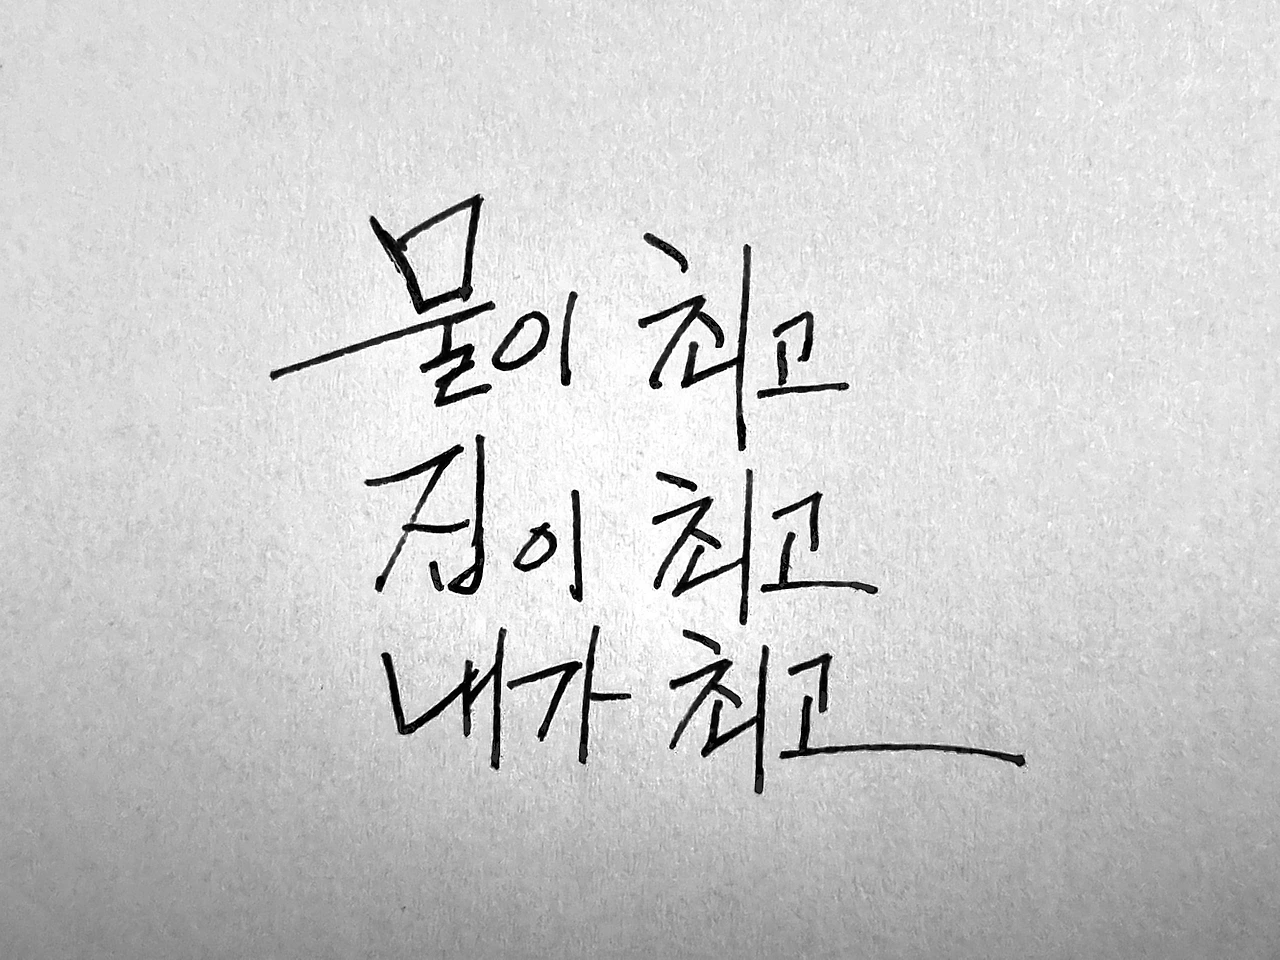 물이 최고
집이 최고
내가 최고